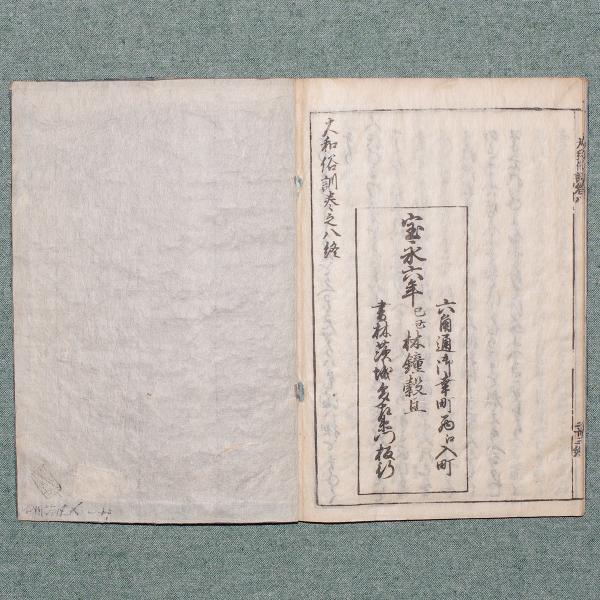 六角通御幸町西江入町
宝永六年己丑林鐘穀旦
書林茨城多左衛門板行
大和俗訓巻之八終